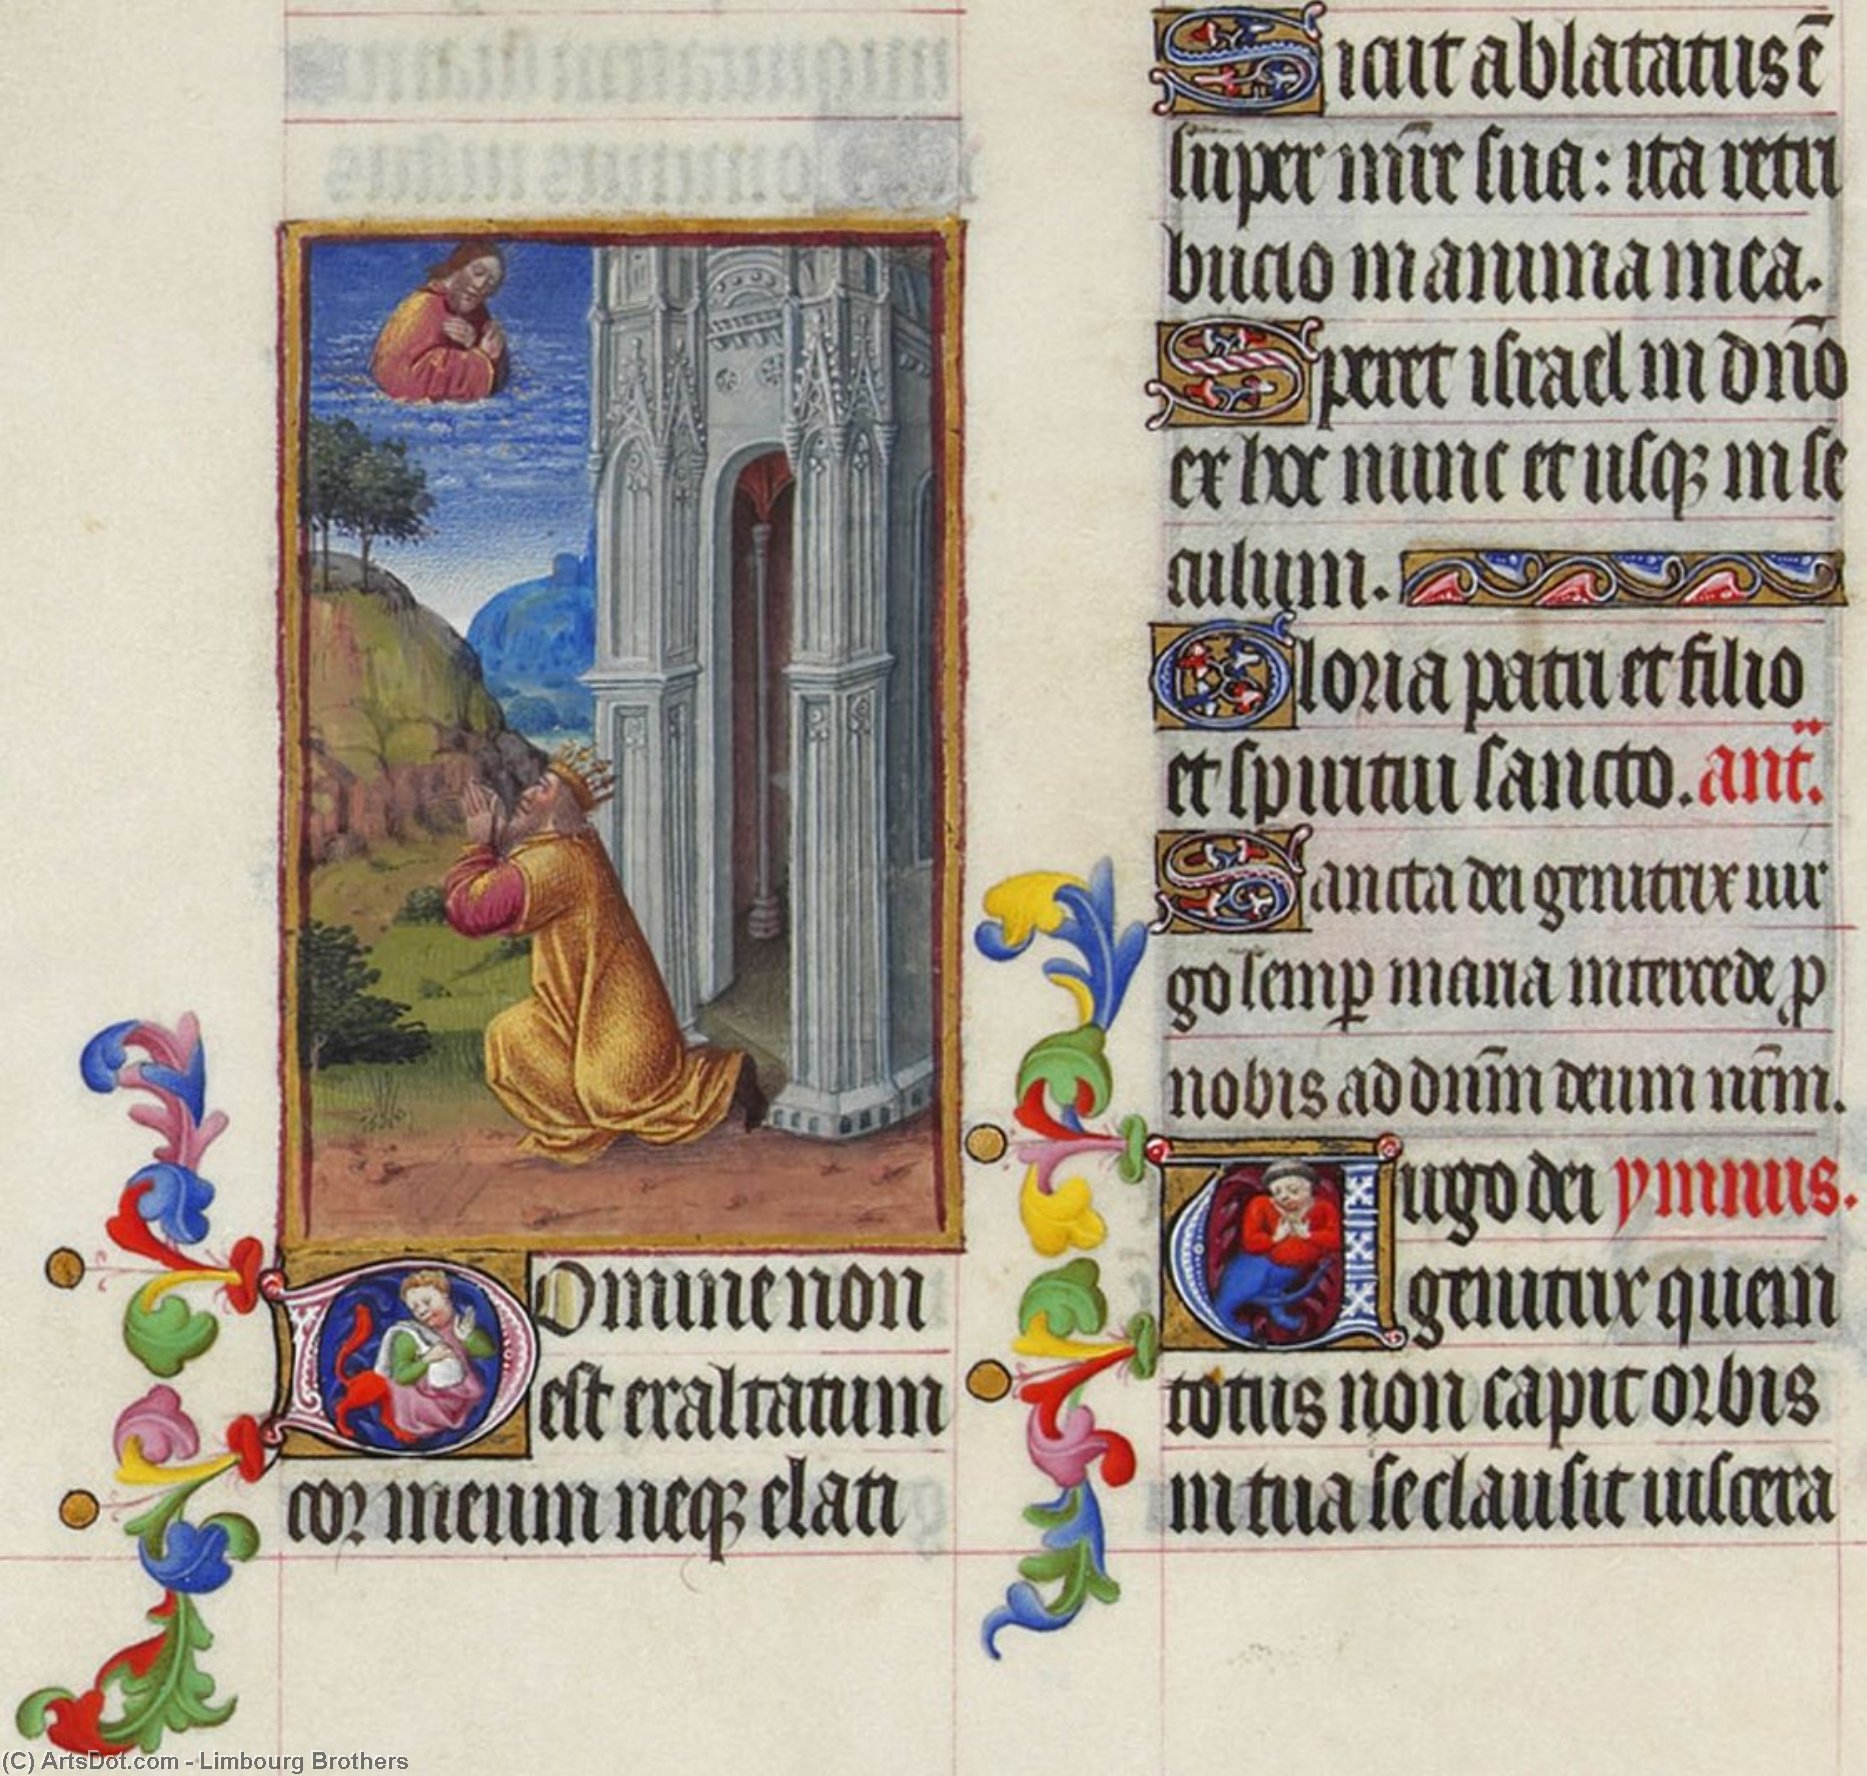 Domine non
est exaltatum
cor meum neqꝫ elati
Sicut ablatatus ē
super mr̄e sua: ita retri
bucio in anima mea.
Speret israel in dn̄o
ex hoc nunc et usqꝫ in se
culum.
Gloria patri et filio
et spiritui sancto. ant.
Sancta dei genitrix vir
go semꝑ maria intercede ꝓ
nobis ad dnm̄ deum nr̄m.
Virgo dei ymnus.
genitrix quem
totus non capit orbis
in tua se clausit viscera
(C) ArtsDot.com - Limbourg Brothers